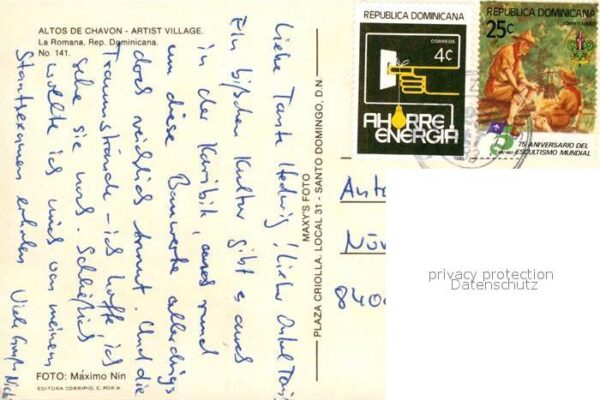 ALTOS DE CHAVON - ARTIST VILLAGE.
La Romana, Rep. Dominicana.
No. 141.
Liebe Tante Hedwig, lieber Onkel Toni,
Ein bißchen Kultur gibt es auch
in der Karibik, auch rund
um diese Bauwerke allerdings
doch reichlich Armut. Und die
Traumstrände - ich hoffe, ich
sehe sie noch. Schließlich
wollte ich mich von meinem
Staatsexamen erholen. Viele Grüße
FOTO: Máximo Nin
EDITORA CORRIPIO, C. POR A.
MAXY'S FOTO
PLAZA CRIOLLA, LOCAL 31 - SANTO DOMINGO, D.N.
REPUBLICA DOMINICANA
CORREOS
4c
AHORRE
ENERGIA
REPUBLICA DOMINICANA
25c
75 ANIVERSARIO DEL
ESCULTISMO MUNDIAL
privacy protection
Datenschutz